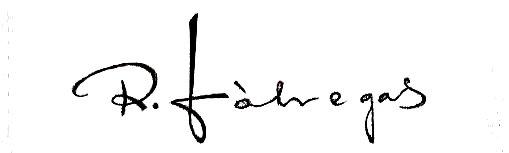 R. Fàbregas